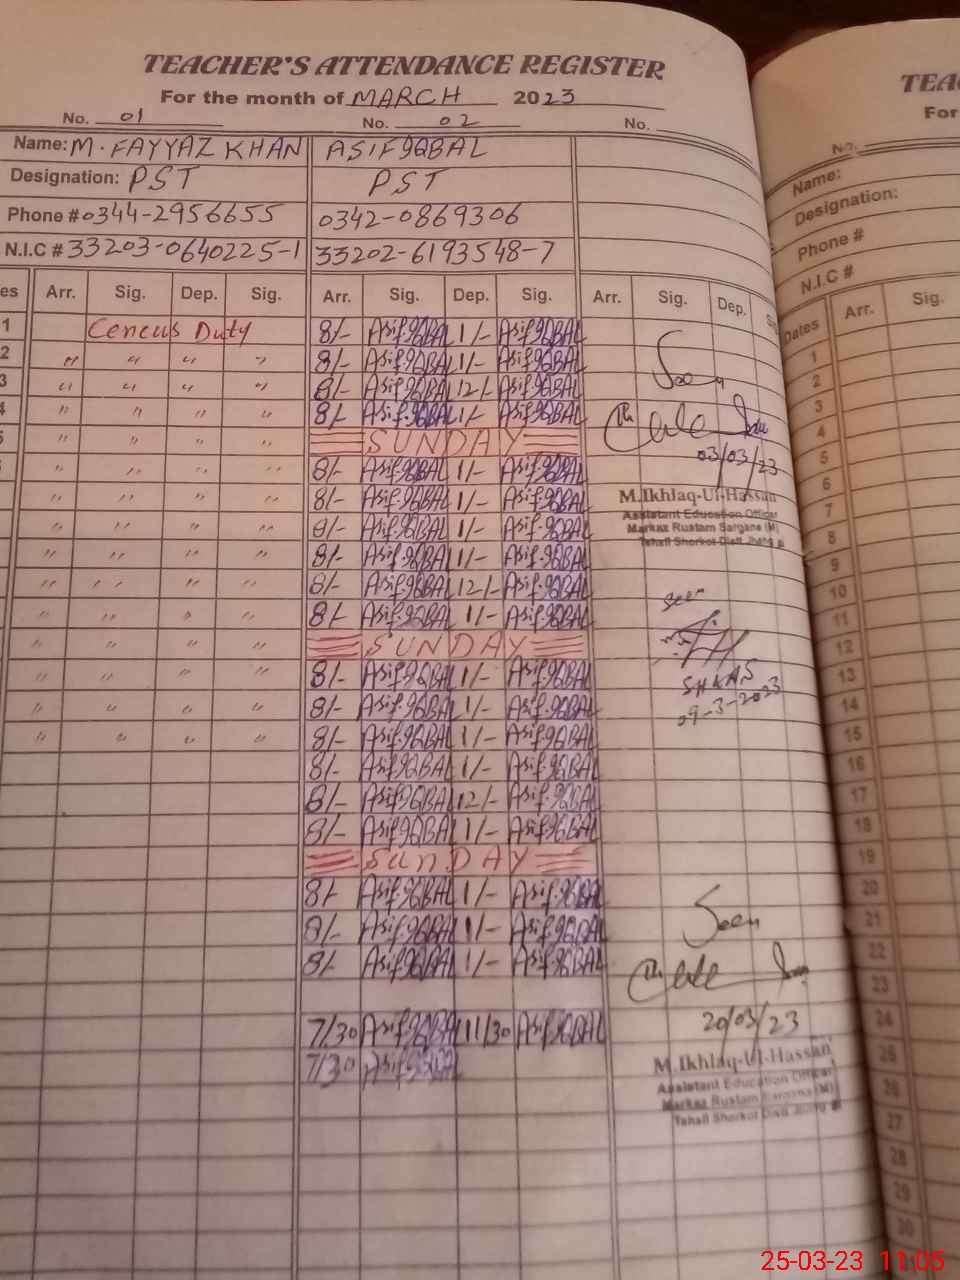 TEACHER'S ATTENDANCE REGISTER
For the month of MARCH 2023
No. 01 No. 02 No.
Name: M. FAYYAZ KHAN ASIF IQBAL
Designation: PST PST
Phone # 0344-2956655 0342-0869306
N.I.C # 33203-0640225-1 33202-6193548-7
es Arr. Sig. Dep. Sig. Arr. Sig. Dep. Sig. Arr. Sig. Dep.
1 Cencus Duty 8/- Asif IQBAL 1/- Asif IQBAL
2 " " " " 8/- Asif IQBAL 1/- Asif IQBAL
3 " " " " 8/- Asif IQBAL 12/- Asif IQBAL
4 " " " " 8/- Asif IQBAL 1/- Asif IQBAL
" " " " SUNDAY
" " " " 8/- Asif IQBAL 1/- Asif IQBAL
" " " " 8/- Asif IQBAL 1/- Asif IQBAL
" " " " 8/- Asif IQBAL 1/- Asif IQBAL
" " " " 8/- Asif IQBAL 1/- Asif IQBAL
" " " " 8/- Asif IQBAL 12/- Asif IQBAL
" " " " 8/- Asif IQBAL 1/- Asif IQBAL
" " " " SUNDAY
" " " " 8/- Asif IQBAL 1/- Asif IQBAL
" " " " 8/- Asif IQBAL 1/- Asif IQBAL
" " " " 8/- Asif IQBAL 1/- Asif IQBAL
8/- Asif IQBAL 1/- Asif IQBAL
8/- Asif IQBAL 12/- Asif IQBAL
8/- Asif IQBAL 1/- Asif IQBAL
SUNDAY
8/- Asif IQBAL 1/- Asif IQBAL
8/- Asif IQBAL 1/- Asif IQBAL
8/- Asif IQBAL 1/- Asif IQBAL
7/30 Asif IQBAL 11/30 Asif IQBAL
7/30 Asif IQBAL
Seen
03/03/23
M.Ikhlaq-Ul-Hassan
Assistant Education Officer
Markaz Rustam Sargana (M)
Tehsil Shorkot Distt Jhang
Seen
09-3-2023
Seen
20/03/23
M.Ikhlaq-Ul-Hassan
Assistant Education Officer
Markaz Rustam Sargana (M)
Tehsil Shorkot Distt Jhang
TEAC
For
No.
Name:
Designation:
Phone #
N.I.C #
Dates Arr. Sig.
1
2
3
4
5
6
7
8
9
10
11
12
13
14
15
16
17
18
19
20
21
22
23
24
25
26
27
28
29
30
25-03-23 11:05